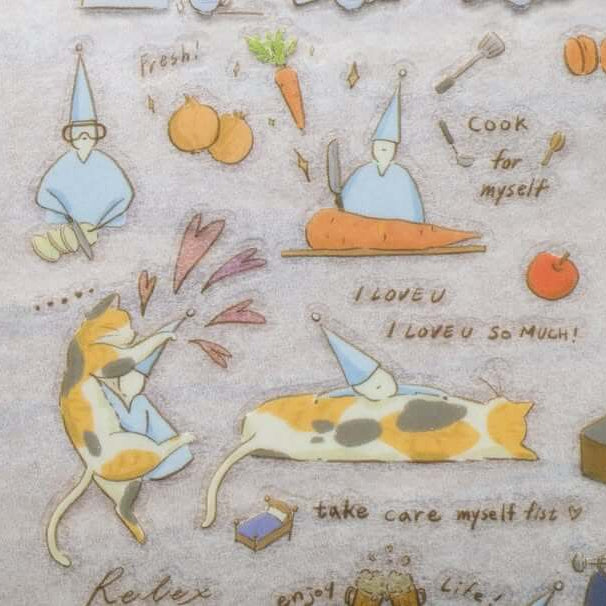 Fresh!
Cook
for
myself
I LOVE U
I LOVE U SO MUCH!
take care myself fist
Relex
enjoy Life,